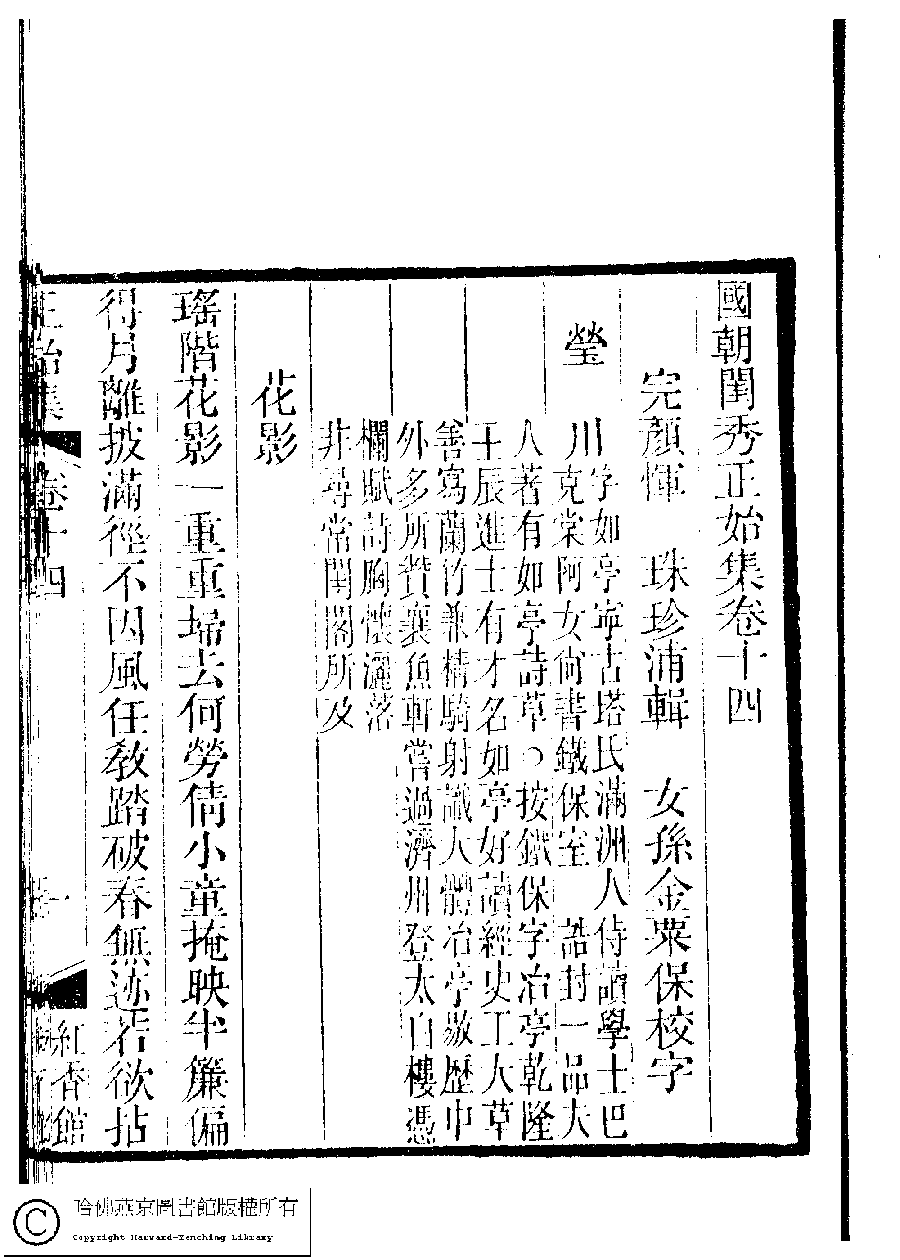 國朝閨秀正始集卷十四
完顏惲 珠珍浦輯 女孫金粟保校字
瑩川
字如亭寧古塔氏滿洲人侍讀學士巴
克棠阿女尚書鐵保室 誥封一品大
人著有如亭詩草○按鐵保字冶亭乾隆
壬辰進士有才名如亭好讀經史工大草
善寫蘭竹兼精騎射識大體冶亭敭歷中
外多所贊襄魚軒嘗過濟州登太白樓憑
欄賦詩胸懷灑落
非尋常閨閣所及
花影
瑤階花影一重重埽去何勞倩小童掩映半簾偏
得月離披滿徑不因風任教踏破春無迹若欲拈
正始集 卷十四 一 紅香館
哈佛燕京圖書館版權所有
Copyright Harvard-Yenching Library